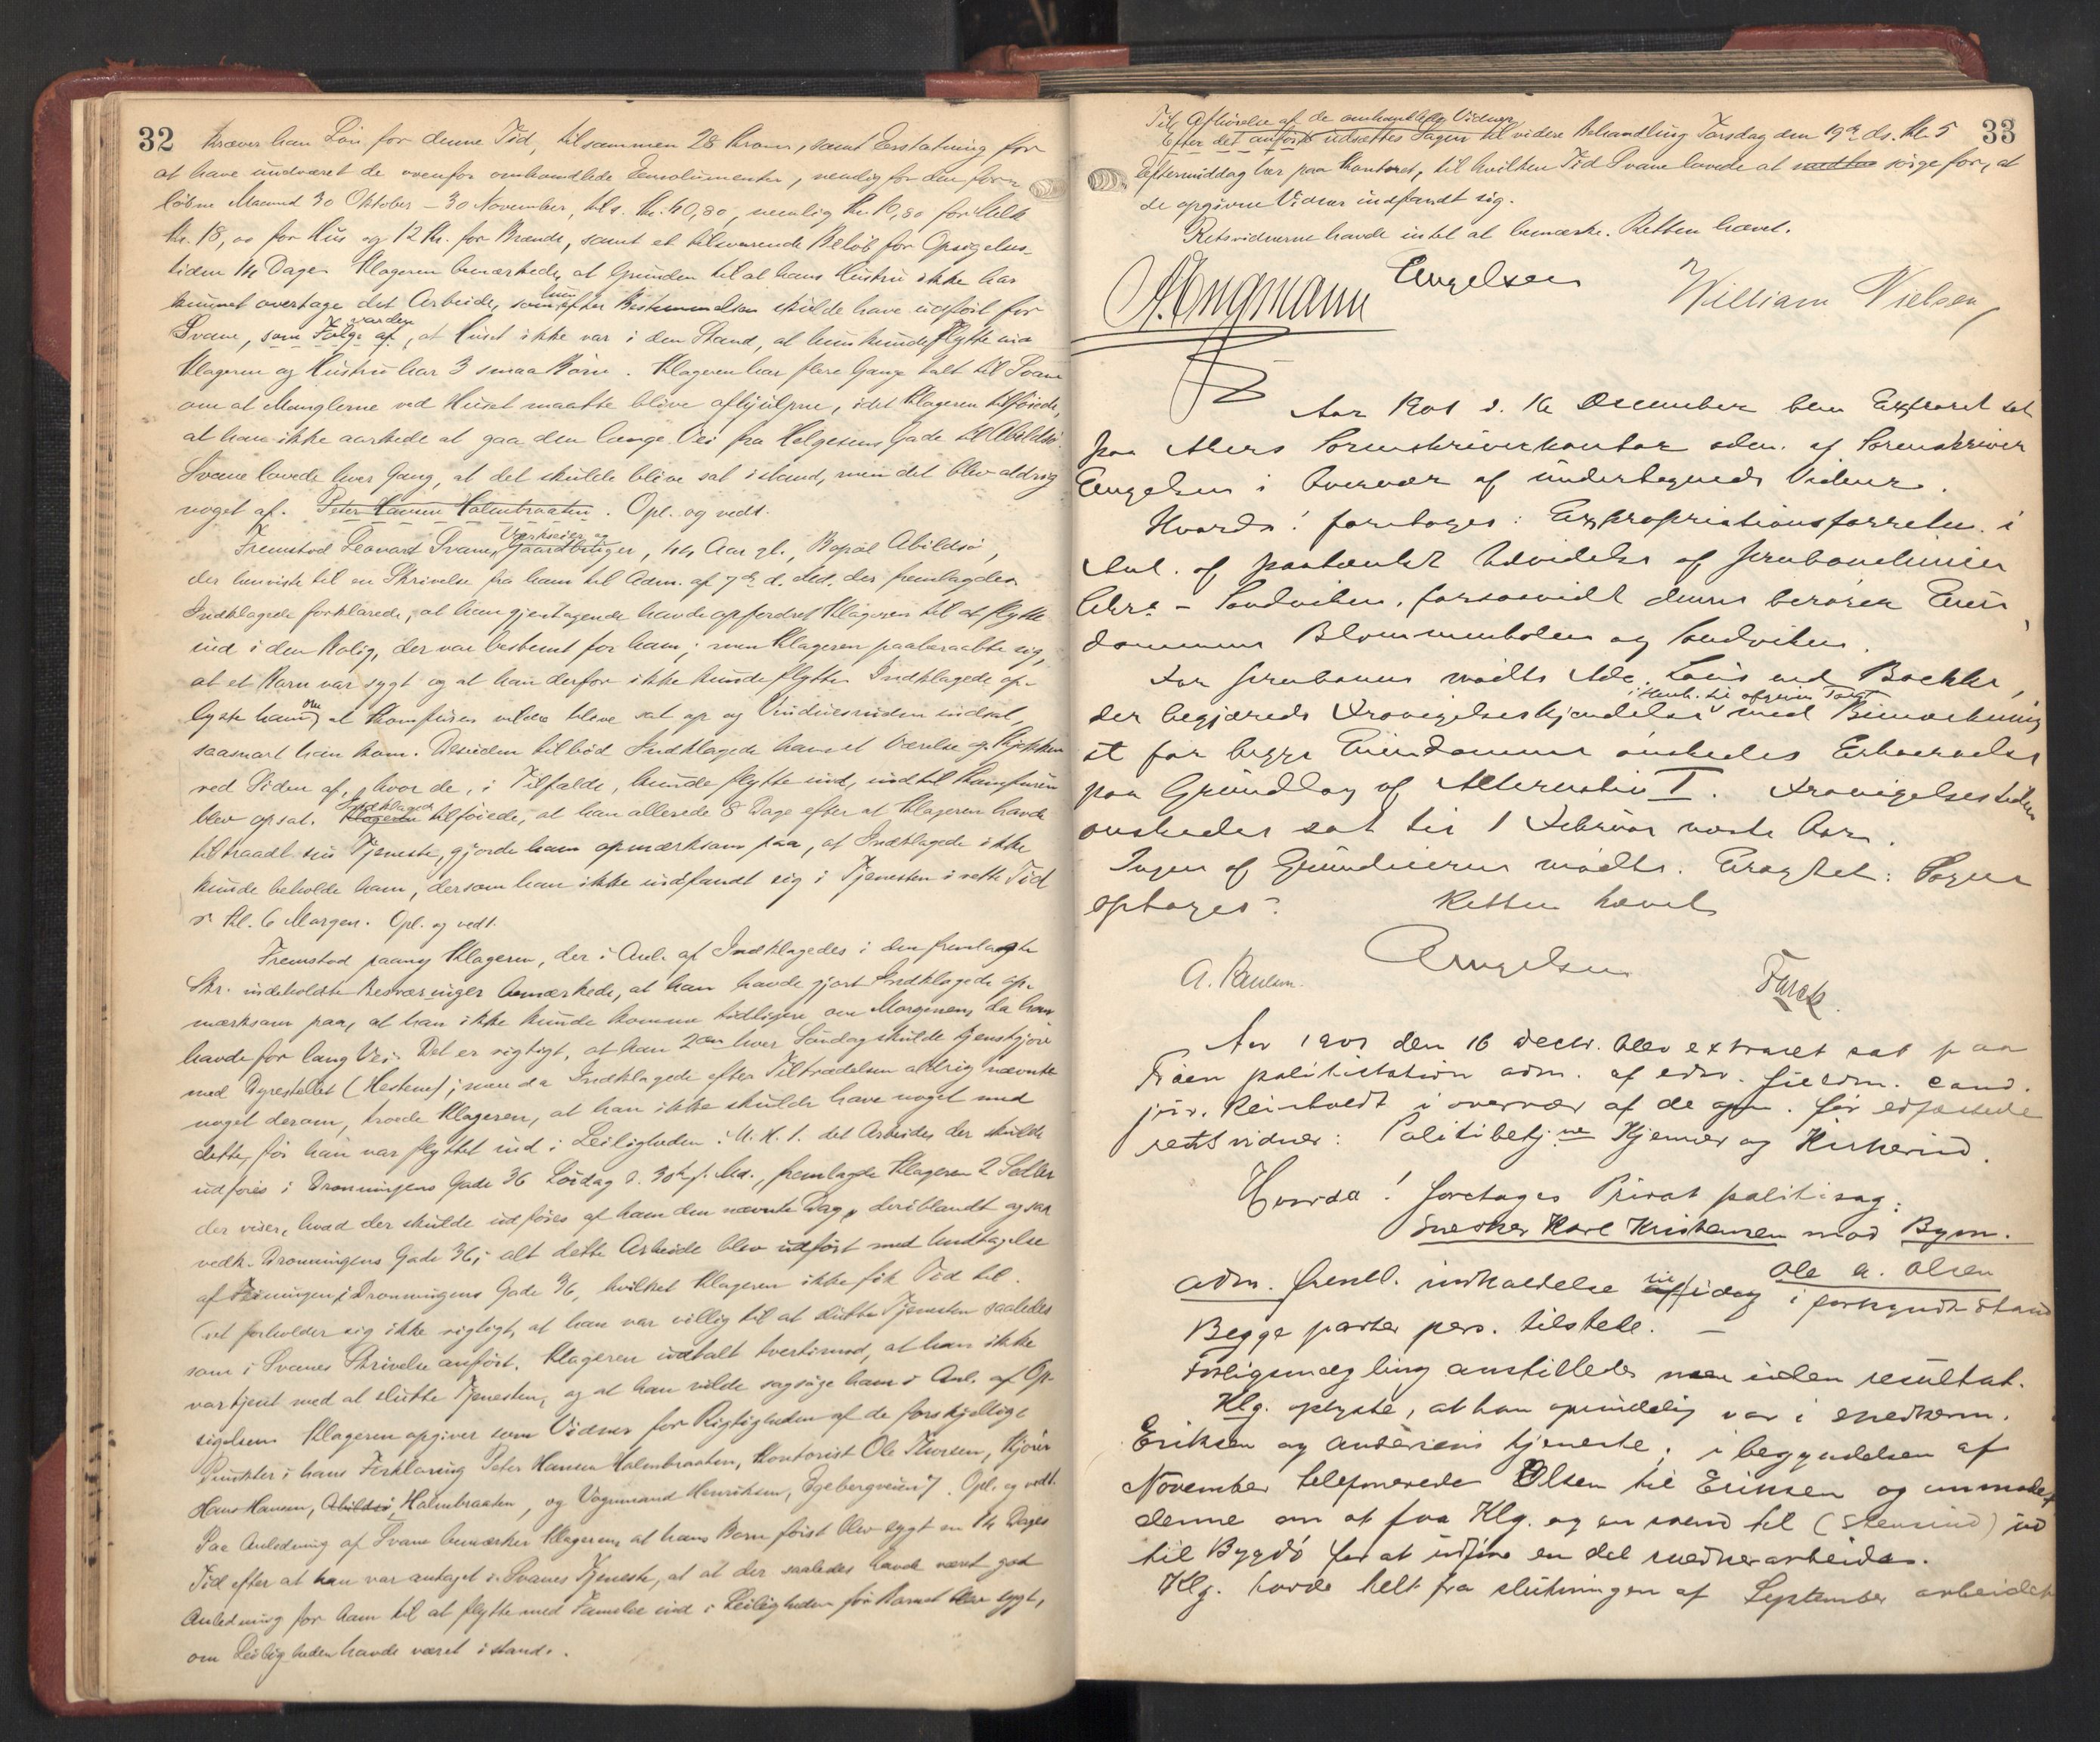 32
kræver han Løn for denne Tid, tilsammen 28 Kroner, samt Erstatning for
at have undværet de ovenfor omhandlede Emolumenter, nemlig for den for-
løbne Maaned 30 Oktober – 30 November, tils. Kr. 40,80, nemlig Kr. 10,80 for Melk
Kr. 18,00 for Hus og 12 Kr. for Brænde, samt et tilsvarende Beløb for Opsigelses-
tiden 14 Dage. Klageren bemærkede, at Grunden til at hans Hustru ikke har
kunnet overtage det Arbeide, som hun efter Bestemmelsen skulde have udført for
Svane, som Følge af, var den, at Huset ikke var i den Stand, at hun kunde flytte ind
Klageren og Hustru har 3 smaa Børn. Klageren har flere Gange talt til Svane
om at Manglerne ved Huset maatte blive afhjulpne, idet Klageren tilføiede,
at han ikke aarkede at gaa den lange Vei fra Helgesens Gade til Abildsø.
Svane lovede hver Gang, at det skulde blive sat istand, men det blev aldrig
noget af. Peter Hansen Halmbraaten. Opl. og vedt.
Fremstod Leonard Svane, Værkseier og Gaardbruger, 44 Aar gl., Bopæl Abildsø,
der henviste til en Skrivelse fra ham til Adm. af 7de d. Md. der fremlagdes
Indklagede forklarede, at han gjentagende havde opfordret Klageren til at flytte
ind i den Bolig, der var bestemt for ham; men Klageren paaberaabte sig,
at et Barn var sygt og at han derfor ikke kunde flytte. Indklagede op-
lyste ham om at Komfuren vilde blive sat op og Vinduesruden indsat,
saasnart han kom. Desuden tilbød Indklagede ham et Værelse og Kjøkken
ved Siden af, hvor de, i Tilfælde, kunde flytte ind, indtil Komfuren
blev opsat. Klageren Indklagede tilføiede, at han allerede 8 Dage efter at Klageren havde
tiltraadt sin Tjeneste, gjorde ham opmærksom paa, at Indklagede ikke
kunde beholde ham, dersom han ikke indfandt sig i Tjenesten i rette Tid
Kl. 6 Morgen. Opl. og vedt.
Fremstod paany Klageren, der i Anl. af Indklagedes i den fremlagte
Skr. indeholdte Besværinger bemærkede, at han havde gjort Indklagede op-
mærksom paa, at han ikke kunde komme tidligere om Morgenen, da han
havde for lang Vei. Det er rigtigt, at han 2den hver Søndag skulde
med Dyrestellet (Hestene); men da Indklagede efter Tiltrædelsen aldrig nævnte
noget derom, troede Klageren, at han ikke skulde have noget med
dette, før han var flyttet ind i Leiligheden. M. H. t. det Arbeide, der skulde
udføres i Dronningens Gade 36 Lørdag d. 30te f. Md., fremlagde Klageren 2 Sedler
der viser, hvad der skulde udføres af ham den nævnte Dag, deriblandt ogsaa
vedk. Dronningens Gade 36; alt dette Arbeide blev udført med Undtagelse
af i Dronningens Gade 36, hvilket Klageren ikke fik Tid til.
Det forholder sig ikke rigtigt, at han var villig til at slutte Tjenesten saaledes
som i Svanes Skrivelse anført. Klageren udtalt tvertimod, at han ikke
var tjent med at slutte Tjenesten, og at han vilde sagsøge ham i Anl. af Op-
sigelsen. Klageren opgiver som Vidner for Rigtigheden af de forskjellige
Punkter i hans Forklaring Peter Hansen Halmbraaten, Kontorist Ole Thorsen, Kjører
Hans Hansen, Abildsø, Halmbraaten, og Vognmand Henriksen, Egebergveien 7. Opl. og vedt.
Paa Anledning af Svane bemærker Klageren, at hans Barn først blev sygt en 14 Dages
Tid efter at han var antaget i Svanes Tjeneste, at at der saaledes havde været god
Anledning for ham til at flytte med Familie ind i Leiligheden før Barnet blev sygt,
om Leiligheden havde været istand.
33
Til Afhørelse af de omhandlede Vidner
Efter det anførte udsættes Sagen til videre Behandling Torsdag den 19de ds. Kl. 5
Eftermiddag her paa Kontoret, til hvilken Tid Svane lovede at sørge for, at
de opgivne Vidner indfandt sig.
Retsvidnerne havde intet at bemærke. Retten hævet.
A. Engmann Engelsen William Nielsen
Aar 1901 d. 16 December blev Extraret sat
paa Akers Sorenskriverkontor adm. af Sorenskriver
Engelsen i Overvær af undertegnede Vidner.
Hvorda! foretoges: Expropriationsforretn. i
Anl. af paatænkt Udvidelse af Jernbanelinien
– Sandviken, forsaavidt denne berører Eien-
dommene Blommenholm og Sandviken.
For Jernbanen mødte Adv. Louis Bache,
der begjærede Fravigelseskjendelse med Bemærkning
i Henh. til
at for begge Eiendomme ønskedes Erhvervelse
paa Grundlag af Alternativ I. Fravigelsestiden
ønskedes sat til 1 Februar næste Aar.
Ingen af Grundeierne mødte. Eragtet: Sagen
optages. Retten hævet
A. Paulsen. Engelsen
Aar 1901 den 16 Decbr. blev extraret sat paa
politistation adm. af edsv. fuldm. cand.
jur. Reinholdt i overvær af de opn. før edfæstede
retsvidner: Politibetj.ne Hjemner og Kirkerud.
Hvorda! foretoges Privat politisag:
Snedker Karl Kristensen mod Bygm.
Ole A. Olsen
Adm. freml. indkaldelse til idag i forkyndt stand
Begge parter pers. tilstede. –
Forligsmægling anstilledes men uden resultat.
Klg. oplyste, at han oprindelig var i snedkerm.
Eriksen og Andersens tjeneste; i begyndelsen af
November telefonerede Olsen til Eriksen og anmodet
denne om at faa Klg. og en svend til (Stensrud) ud
til Bygdø for at udføre en del snedkerarbeide.
Klg. havde helt fra slutningen af September arbeidet